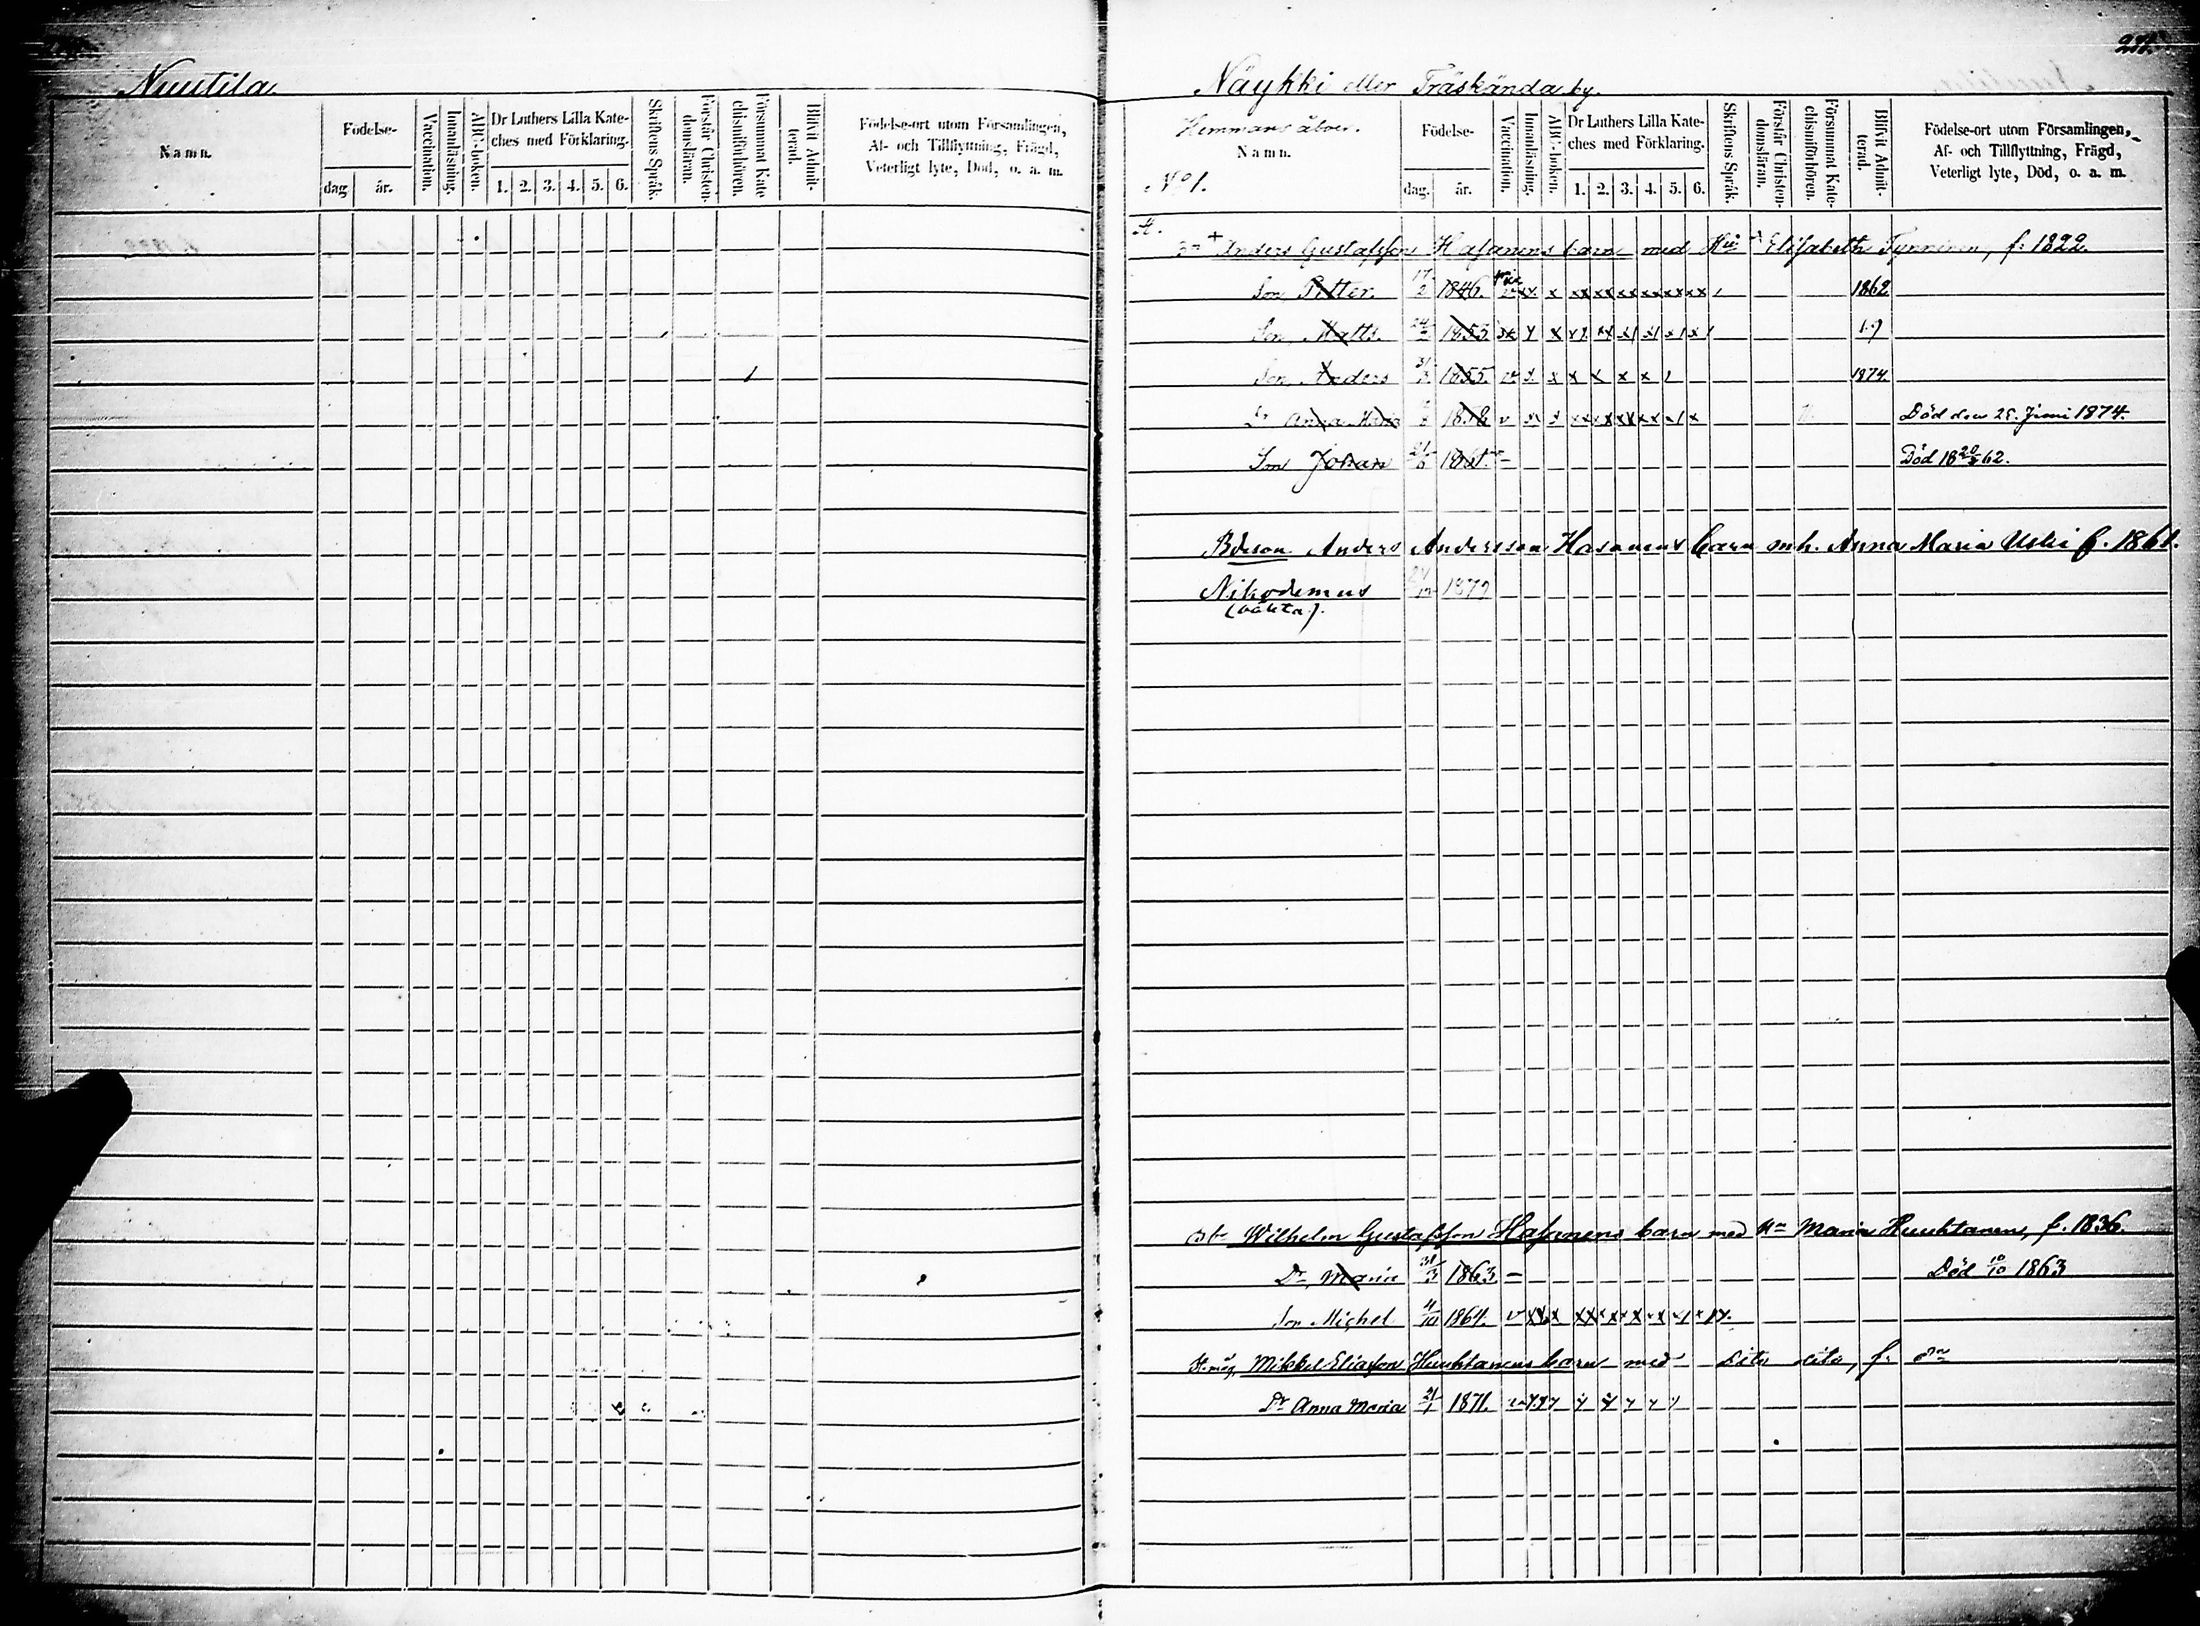 Nuutila
Namn.
Födelse-
dag
år.
Vaccination.
Innanläsning.
ABC-boken.
Dr Luthers Lilla Kate-
ches med Förklaring.
1. 2. 3. 4. 5. 6.
Skriftens Språk.
Förstår Christen-
domsläran.
Försummat Kate
chismiförhören.
Blifvit Admit-
terad.
Födelse-ort utom Församlingen,
Af- och Tillflyttning, Frägd,
Veterligt lyte, Död, o. a. m.
Näykki eller Träskända by.
Hemmans åboer.
Namn.
No 1.
Födelse-
dag.
år.
Vaccination.
Innanläsning.
ABC-boken.
Dr Luthers Lilla Kate-
ches med Förklaring.
1. 2. 3. 4. 5. 6.
Skriftens Språk.
Förstår Christen-
domsläran.
Försummat Kate-
chismiförhören.
Blifvit Admit-
terad.
Födelse-ort utom Församlingen,
Af- och Tillflyttning, Frägd,
Veterligt lyte, Död, o. a. m.
Anders Gustafsson Hasanens barn med Elisabeth Tynninen, f. 1822.
Son Petter. 17/2 1846. 1862
Son Matts. 1853
Son Anders 1855. 1874.
Dr Anna Maria 1858 Död den 25. Juni 1874.
Son Johan 1861. Död 18 62.
Bdeson Anders Andersson Hasanens barn m.h. Anna Maria Uski f. 1861.
Nikodemus 1879
(oäkta).
Wilhelm Gustafsson Hasanens barn med Hu Maria Huuhtanen, f. 1836.
Dr Maria 31/3 1863 Död 10/10 1863
Son Michel 4/10 1864.
St. måg Mikkel Eliasson Huuhtanens barn med dito dito, f.
Dr Anna Maria 21/1 1871.